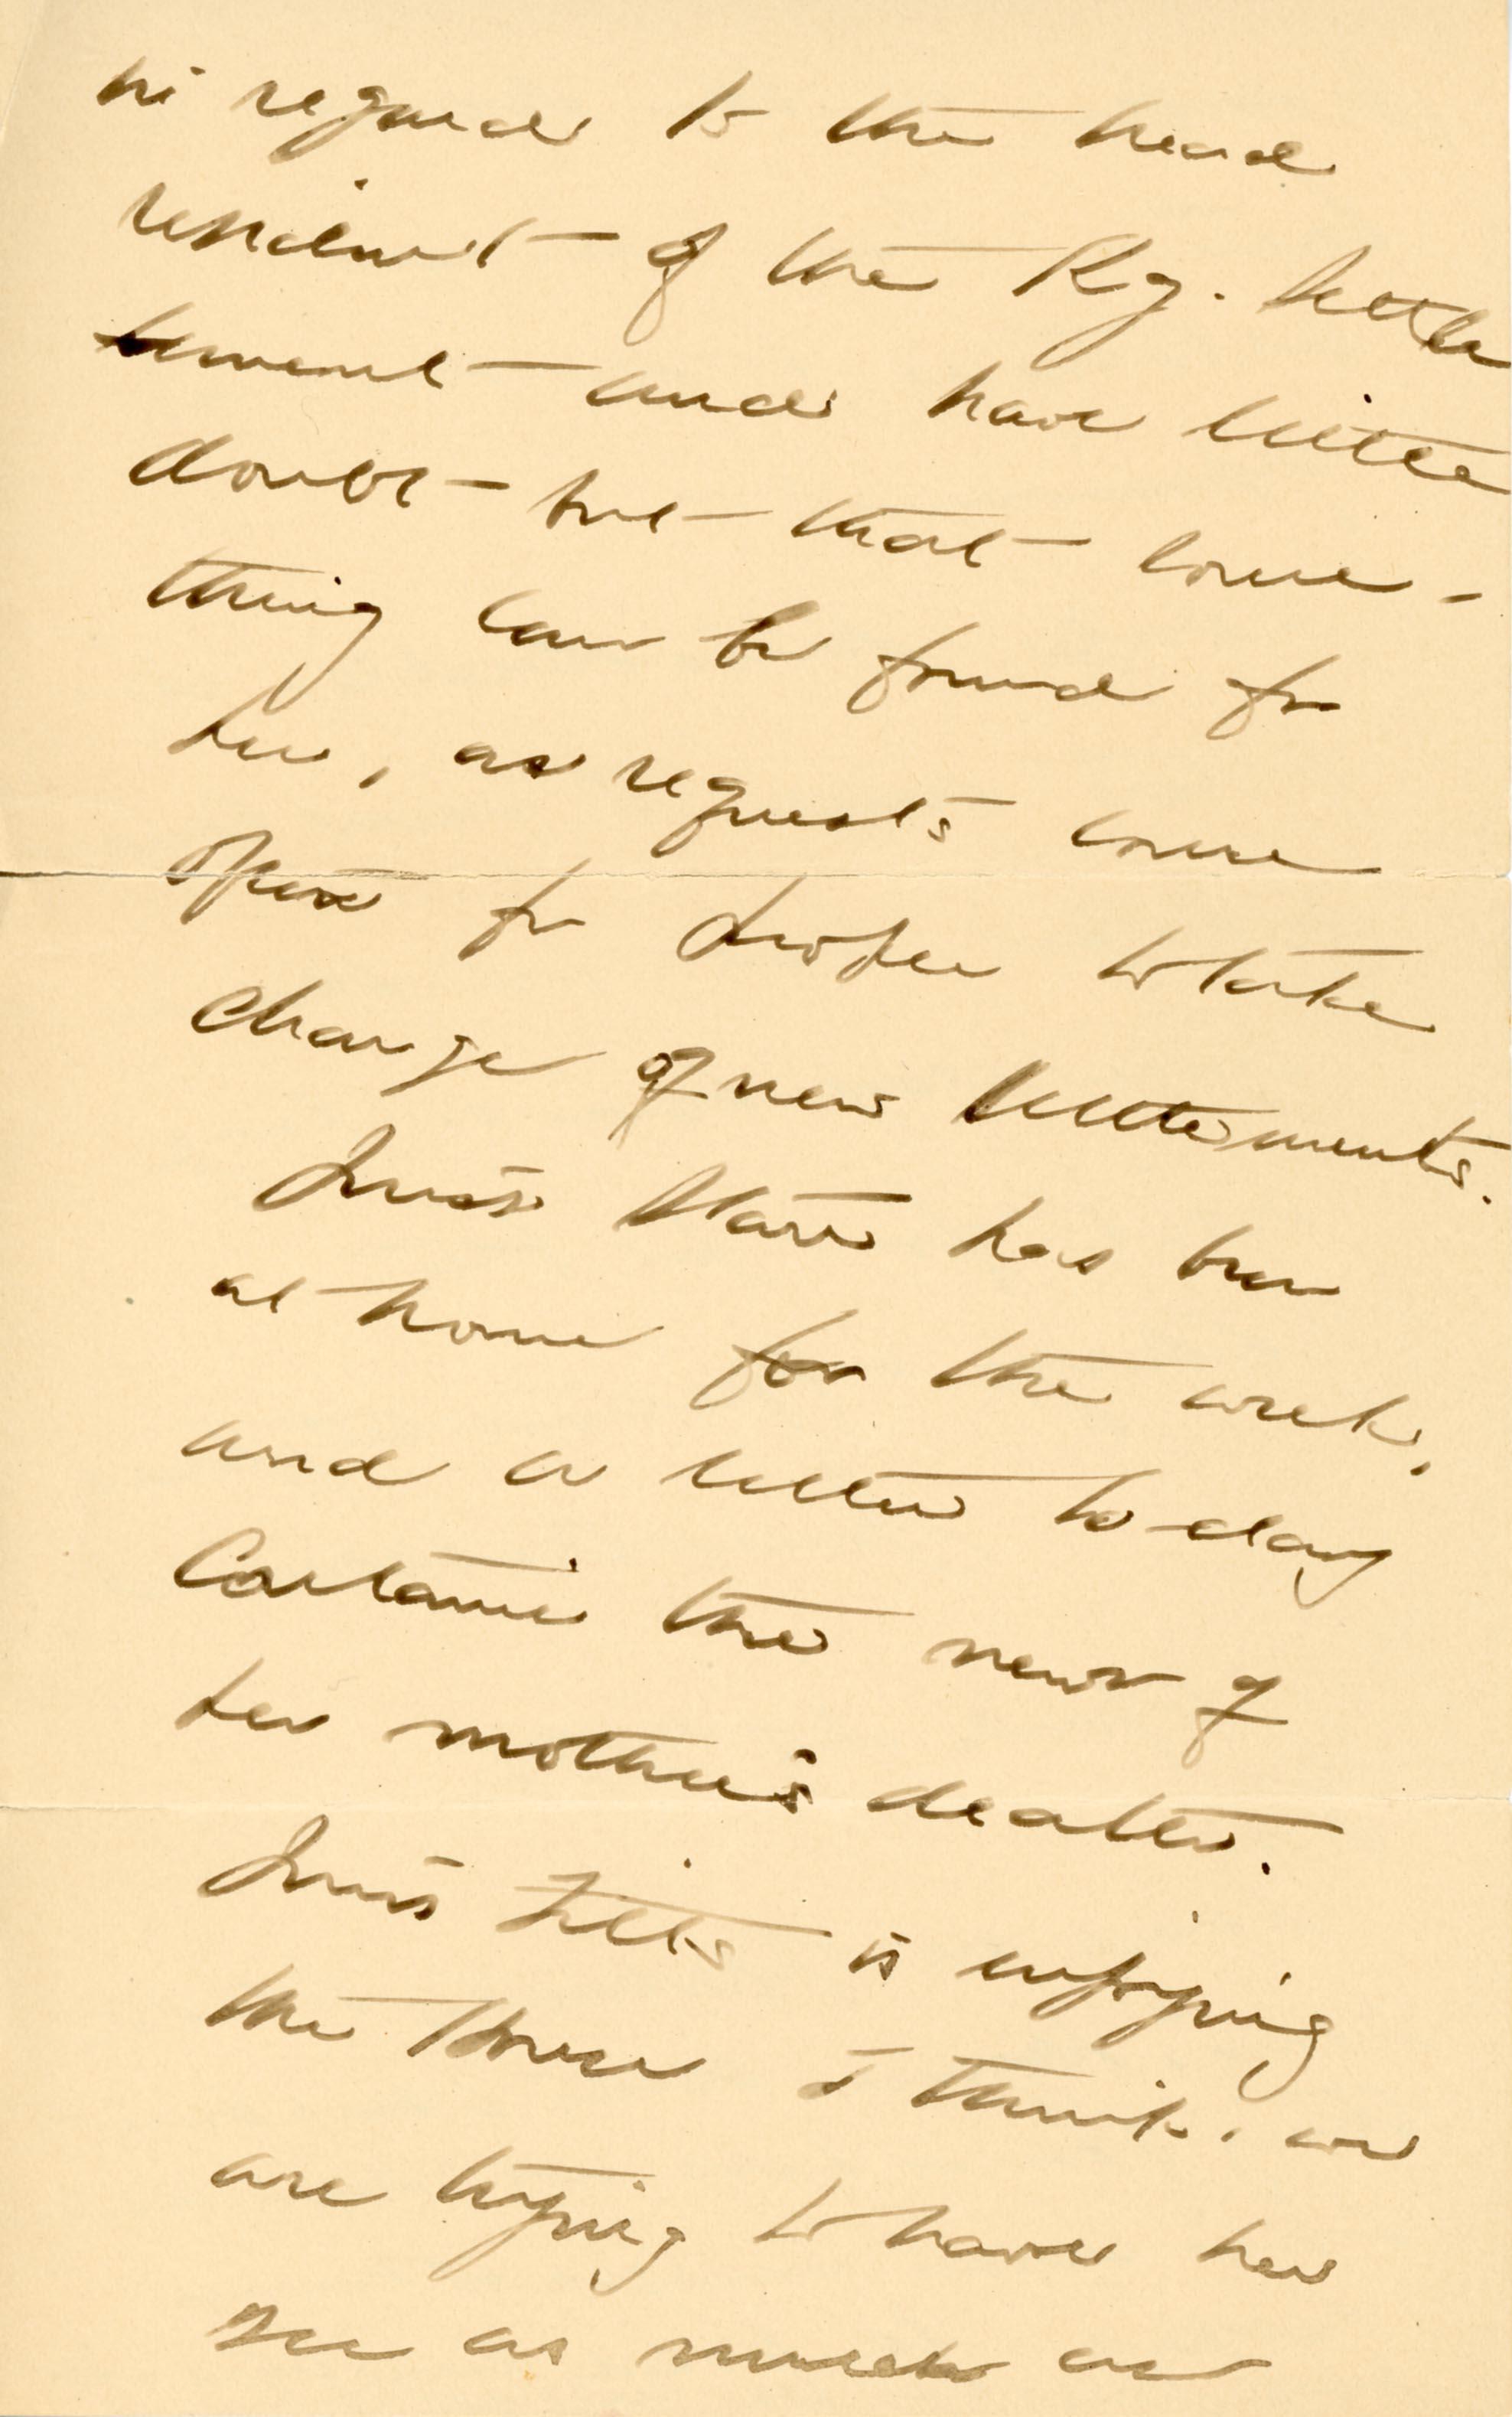 in regards to the head
resident of the Ky. Settle
ment and have little
doubt but that some-
thing can be found for
her, as requests come
often for people to take
charge of new settlements.
Miss has been
at home for the week,
and a letter to-day
contains the news of
her mother's death.
Miss is enjoying
the House I think. we
are trying to have her
see as much as